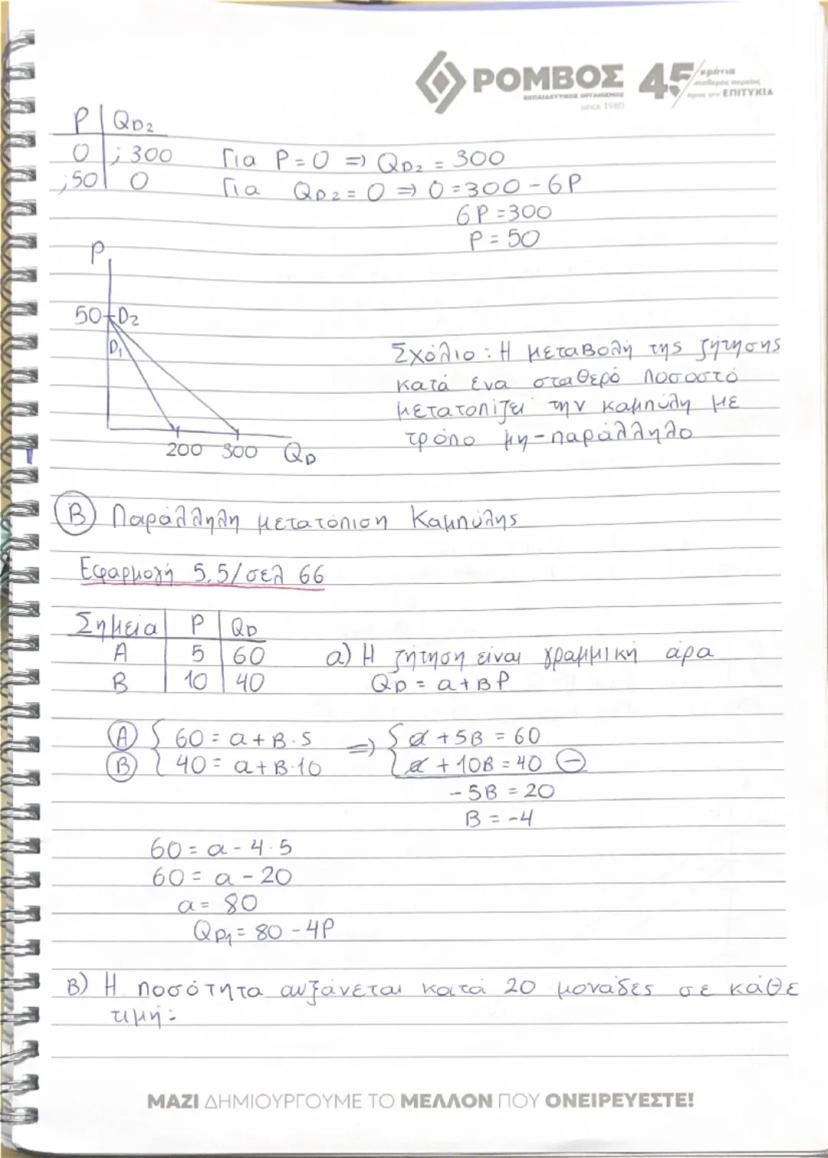 ΡΟΜΒΟΣ
ΕΚΠΑΙΔΕΥΤΙΚΟΣ ΟΡΓΑΝΙΣΜΟΣ
since 1980
45 χρόνια
σταθερής πορείας
προς την ΕΠΙΤΥΧΙΑ
P | QD2
0 | ; 300 Για P = 0 => QD2 = 300
; 50 | 0 Για QD2 = 0 => 0 = 300 - 6P
6P = 300
P = 50
P
50 D2
D1
200 300 QD
Σχόλιο : Η μεταβολή της ζήτησης
κατά ενα σταθερό ποσοστό
μετατοπίζει την καμπύλη με
τρόπο μη-παράλληλο
Β Παράλληλη μετατόπιση Καμπύλης
Εφαρμογή 5.5/σελ 66
Σημεία | P | QD
A | 5 | 60 α) Η ζήτηση είναι γραμμική άρα
B | 10 | 40 QD = α + βP
Α { 60 = α + β · 5 => { α + 5β = 60
Β { 40 = α + β · 10 { α + 10β = 40 -
-5β = 20
β = -4
60 = α - 4 · 5
60 = α - 20
α = 80
QD1 = 80 - 4P
β) Η ποσότητα αυξάνεται κατά 20 μονάδες σε κάθε
τιμή :
ΜΑΖΙ ΔΗΜΙΟΥΡΓΟΥΜΕ ΤΟ ΜΕΛΛΟΝ ΠΟΥ ΟΝΕΙΡΕΥΕΣΤΕ!